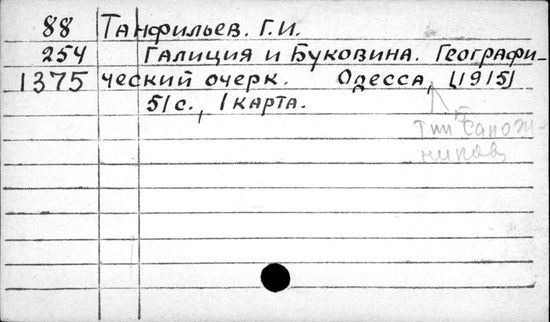 88 Танфильев. Г.И.
254 Галиция и Буковина. Географи-
1375 ческий очерк. Одесса, [1915]
51с., 1 карта.
Тип. Сапож-
ников